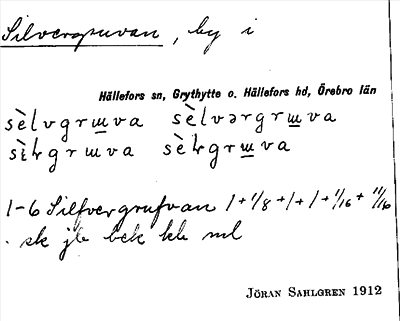 Silvergruvan, by i
Hällefors sn, Grythytte o. Hällefors hd, Örebro län
sèlvgrɯva sèlvərgrɯva
grɯva grɯva
1-6 Silfvergrufvan 1 + 1/8 + 1 + 1 + 1/16 + 11/16
. sk jb bek kb ml
JÖRAN SAHLGREN 1912